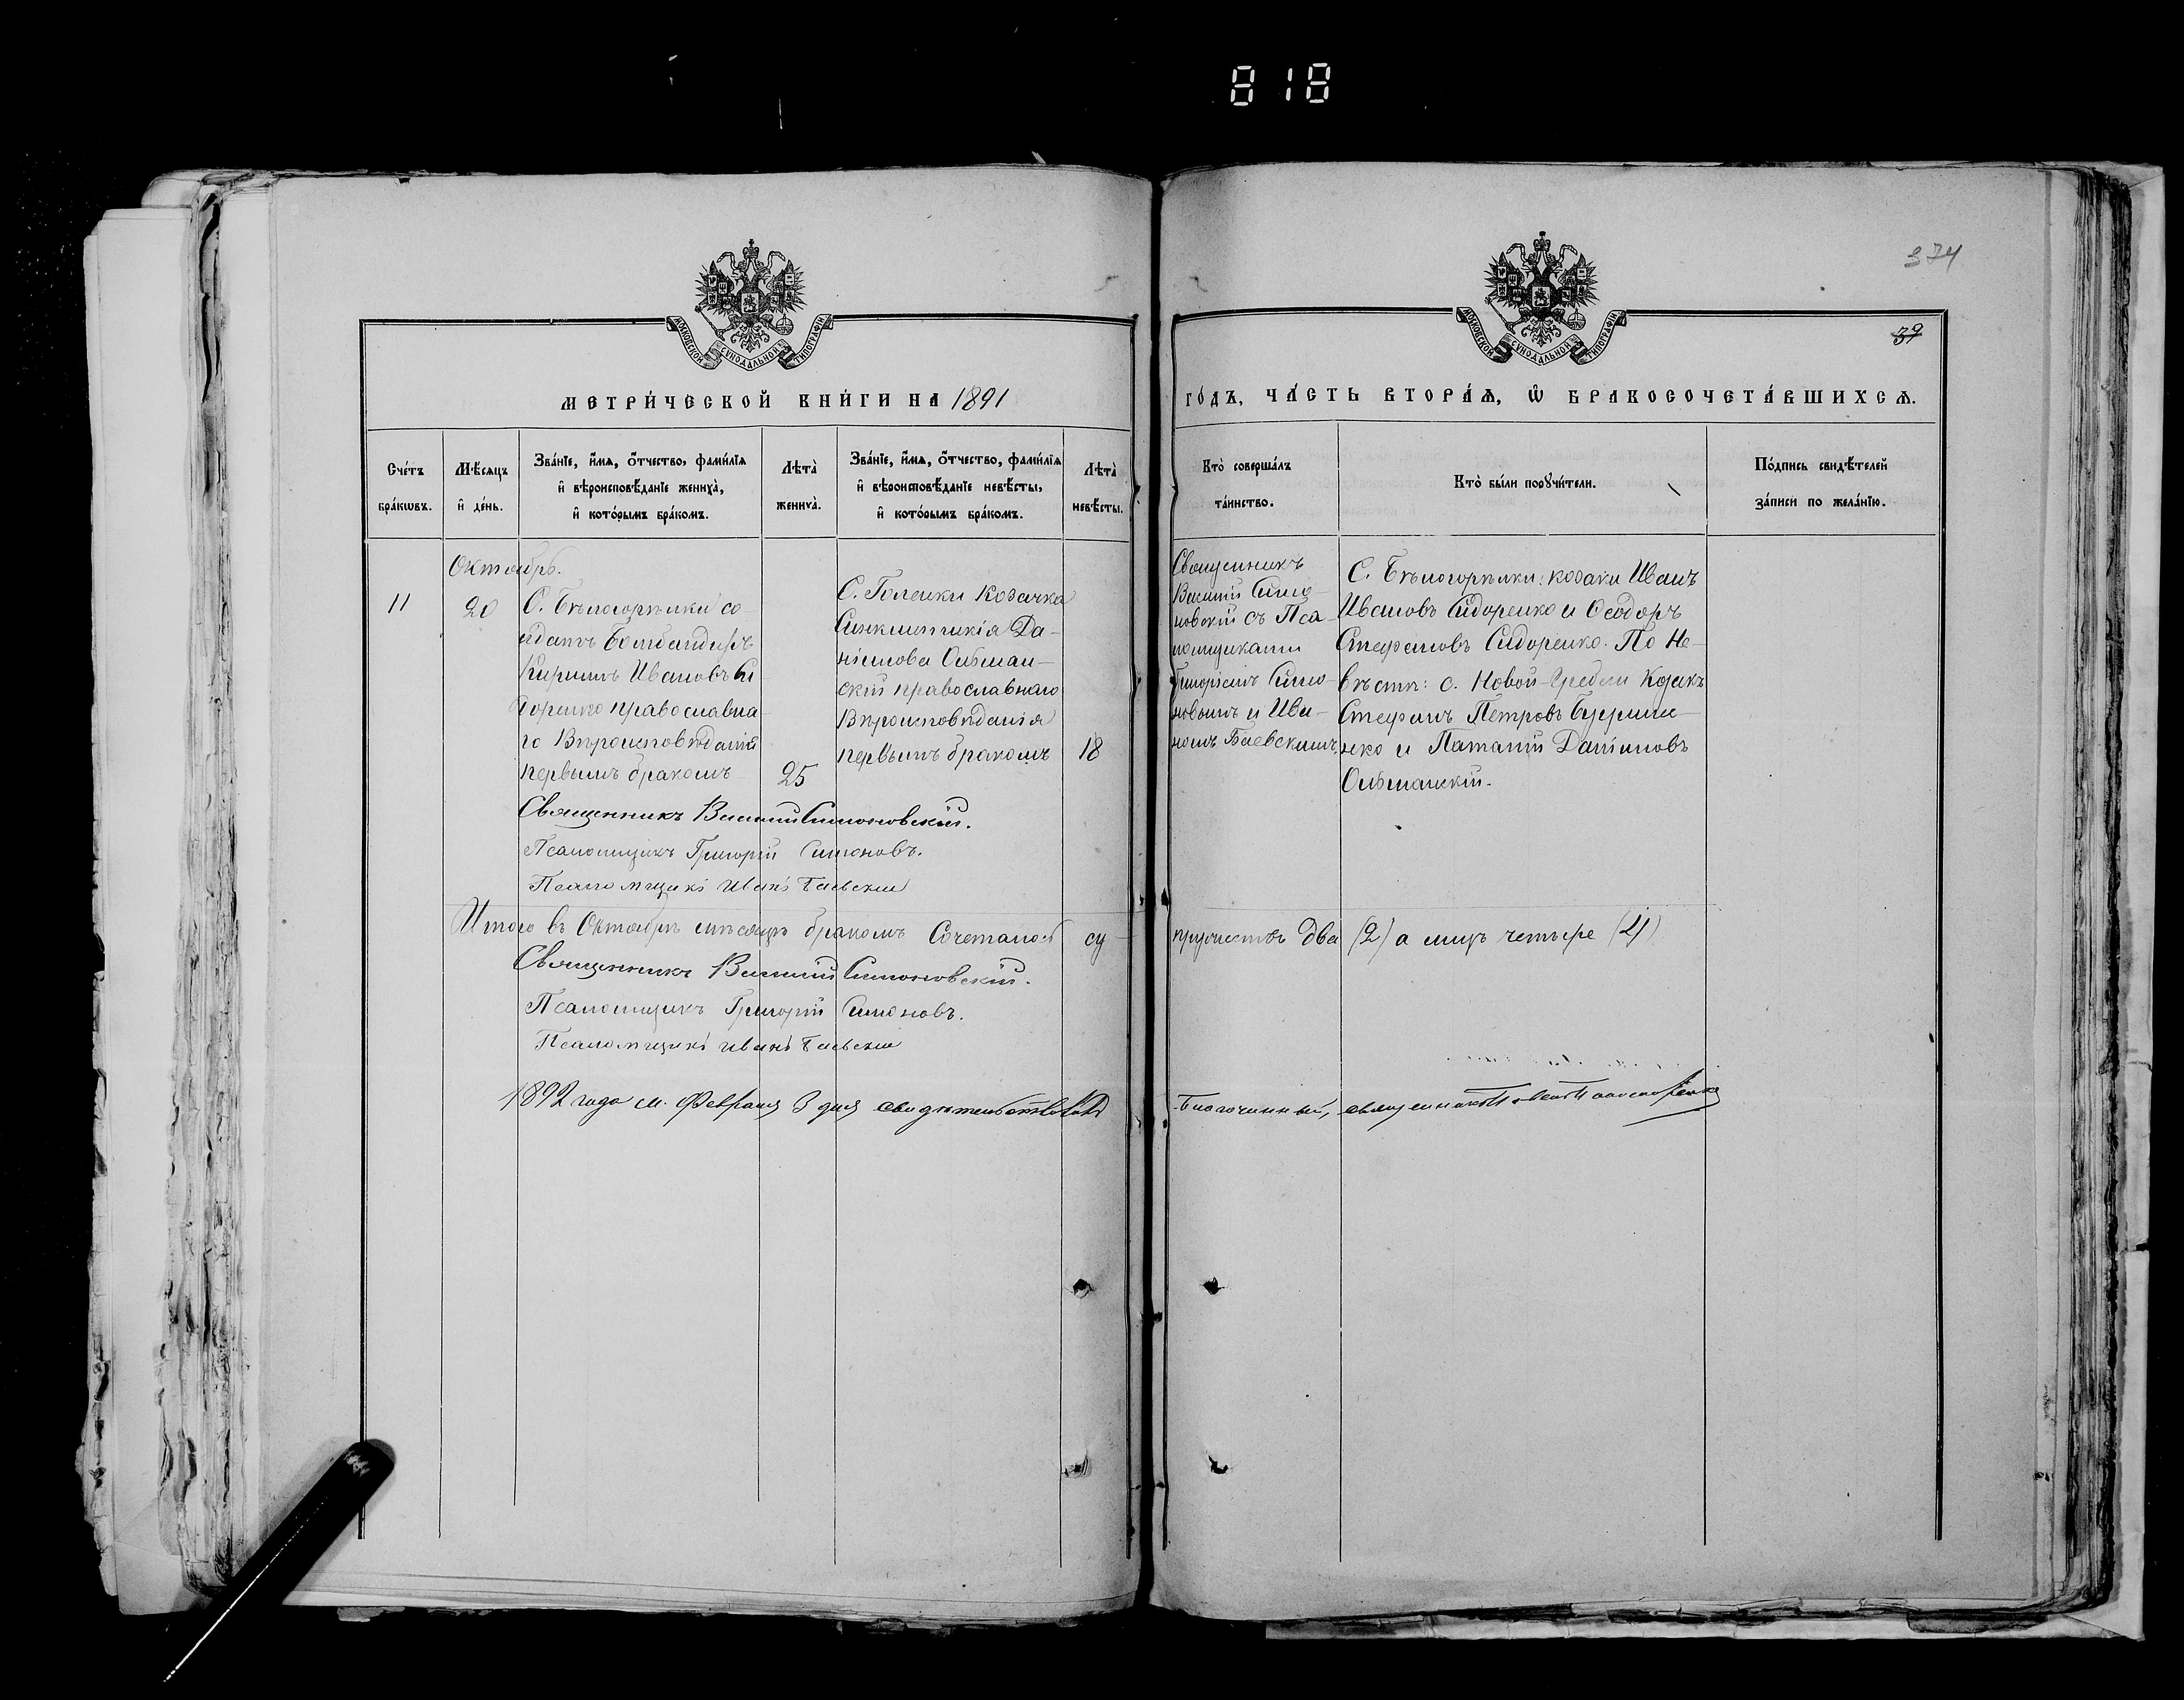 818
374
39
МОСКОВСКОЙ СѴНОДАЛЬНОЙ ТИПОГРАФІИ
МОСКОВСКОЙ СѴНОДАЛЬНОЙ ТИПОГРАФІИ
МЕТРИ́ЧЕСКОЙ КНИ́ГИ НА 1891
ГО́ДЪ, ЧА́СТЬ ВТОРА́Ѧ, Ѽ БРАКОСОЧЕТА́ВШИХСѦ.
Сче́тъ бра́кѡвъ.
Мѣ́сяцъ и҆ де́нь.
Зва́нїе, и҆́мѧ, ѻ҆́тчество, фами́лїѧ
и҆ вѣроисповѣ́данїе жениха̀,
и҆ кото́рымъ бра́комъ.
Лѣта̀ жениха̀.
Зва́нїе, и҆́мѧ, ѻ҆́тчество, фами́лїѧ
и҆ вѣроисповѣ́данїе невѣ́сты,
и҆ кото́рымъ бра́комъ.
Лѣта̀ невѣ́сты.
Кто̀ соверша́лъ
та́инство.
Кто̀ бы́ли порꙋчи́тели.
По́дпись свидѣ́телей
за́писи по жела́нїю.
Октябрь.
11
20
С. Бѣлогорѣлки со-
лдатъ Бомбандиръ
Кириллъ Ивановъ Си
доренко православна-
го Вѣроисповѣданія
первымъ бракомъ
25
С. Голенки Козачка
Синклитикія Да-
ніилова Ольшан-
скій православнаго
Вѣроисповѣданія
первымъ бракомъ
18
Священникъ
Василій Симо-
новскій съ Пса-
ломщиками
Григоріемъ Симо-
новымъ и Ива-
номъ Баевскимъ.
С. Бѣлогорѣлки: козаки Иванъ
Ивановъ Сидоренко и Ѳеодоръ
Стефановъ Сидоренко. По Не-
вѣстѣ: с. Новой-Гребли Козакъ
Стефанъ Петровъ
нко и Даніиловъ
Ольшанскій.
Священникъ Василій Симоновскій.
Псаломщикъ Григорій Симоновъ.
Псаломщикъ Иванъ Баевскій
Итого въ Октябрѣ мѣсяцѣ бракомъ Сочеталось су-
пружествъ два (2) а лицъ четыре (4)
Священникъ Василій Симоновскій.
Псаломщикъ Григорій Симоновъ.
Псаломщикъ Иванъ Баевскій
1892 года м. Февраля 3 дня свидѣтельствовалъ
Благочинный, священникъ